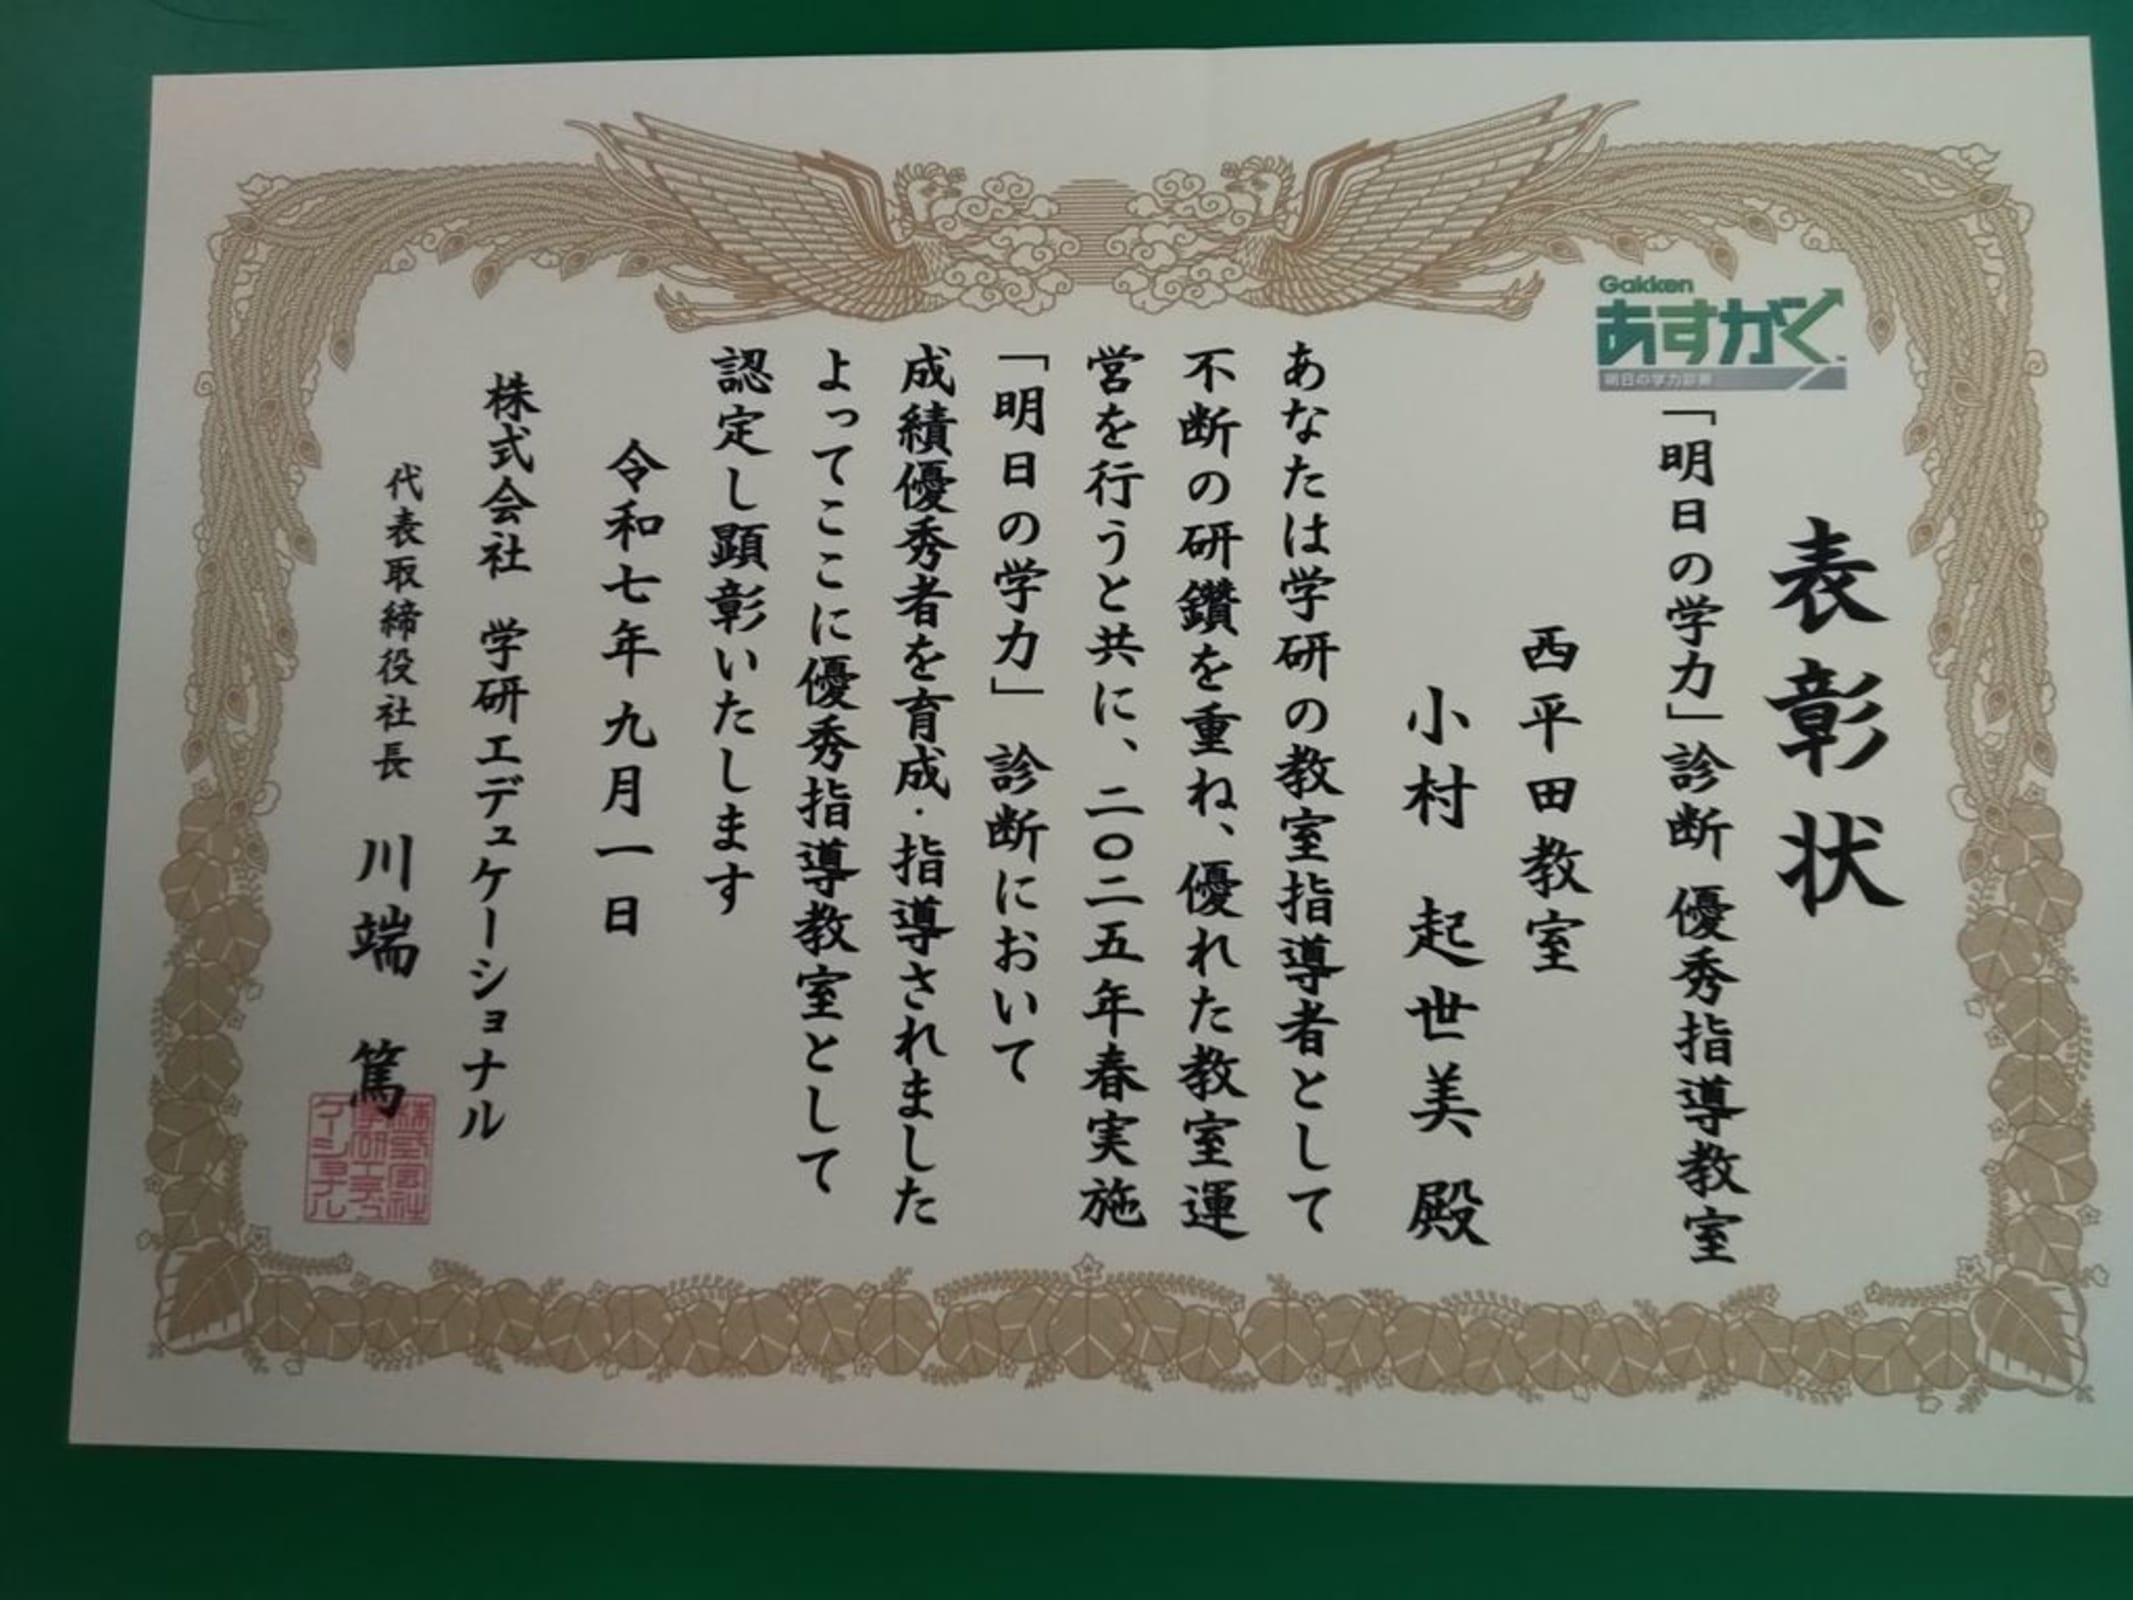 表彰状
Gakken
あすがく
明日の学力診断
「明日の学力」診断 優秀指導教室
西平田教室
小村 起世美 殿
あなたは学研の教室指導者として
不断の研鑽を重ね、優れた教室運
営を行うと共に、二〇二五年春実施
「明日の学力」診断において
成績優秀者を育成・指導されました
よってここに優秀指導教室として
認定し顕彰いたします
令和七年九月一日
株式会社 学研エデュケーショナル
代表取締役社長 川端 篤
株式会社
学研エデュ
ケーショナル